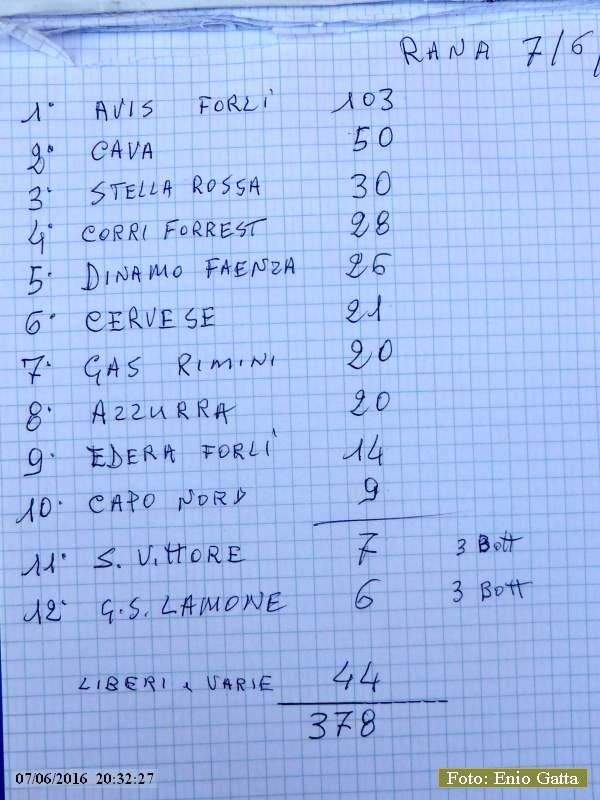 RANA 7/6/
1° AVIS FORLÌ 103
2° CAVA 50
3° STELLA ROSSA 30
4° CORRI FORREST 28
5° DINAMO FAENZA 26
6° CERVESE 21
7° GAS RIMINI 20
8° AZZURRA 20
9° EDERA FORLÌ 14
10° CAPO NORD 9
11° S. VITTORE 7 3 BOTT
12° G.S. LAMONE 6 3 BOTT
LIBERI e VARIE 44
378
07/06/2016 20:32:27
Foto: Enio Gatta